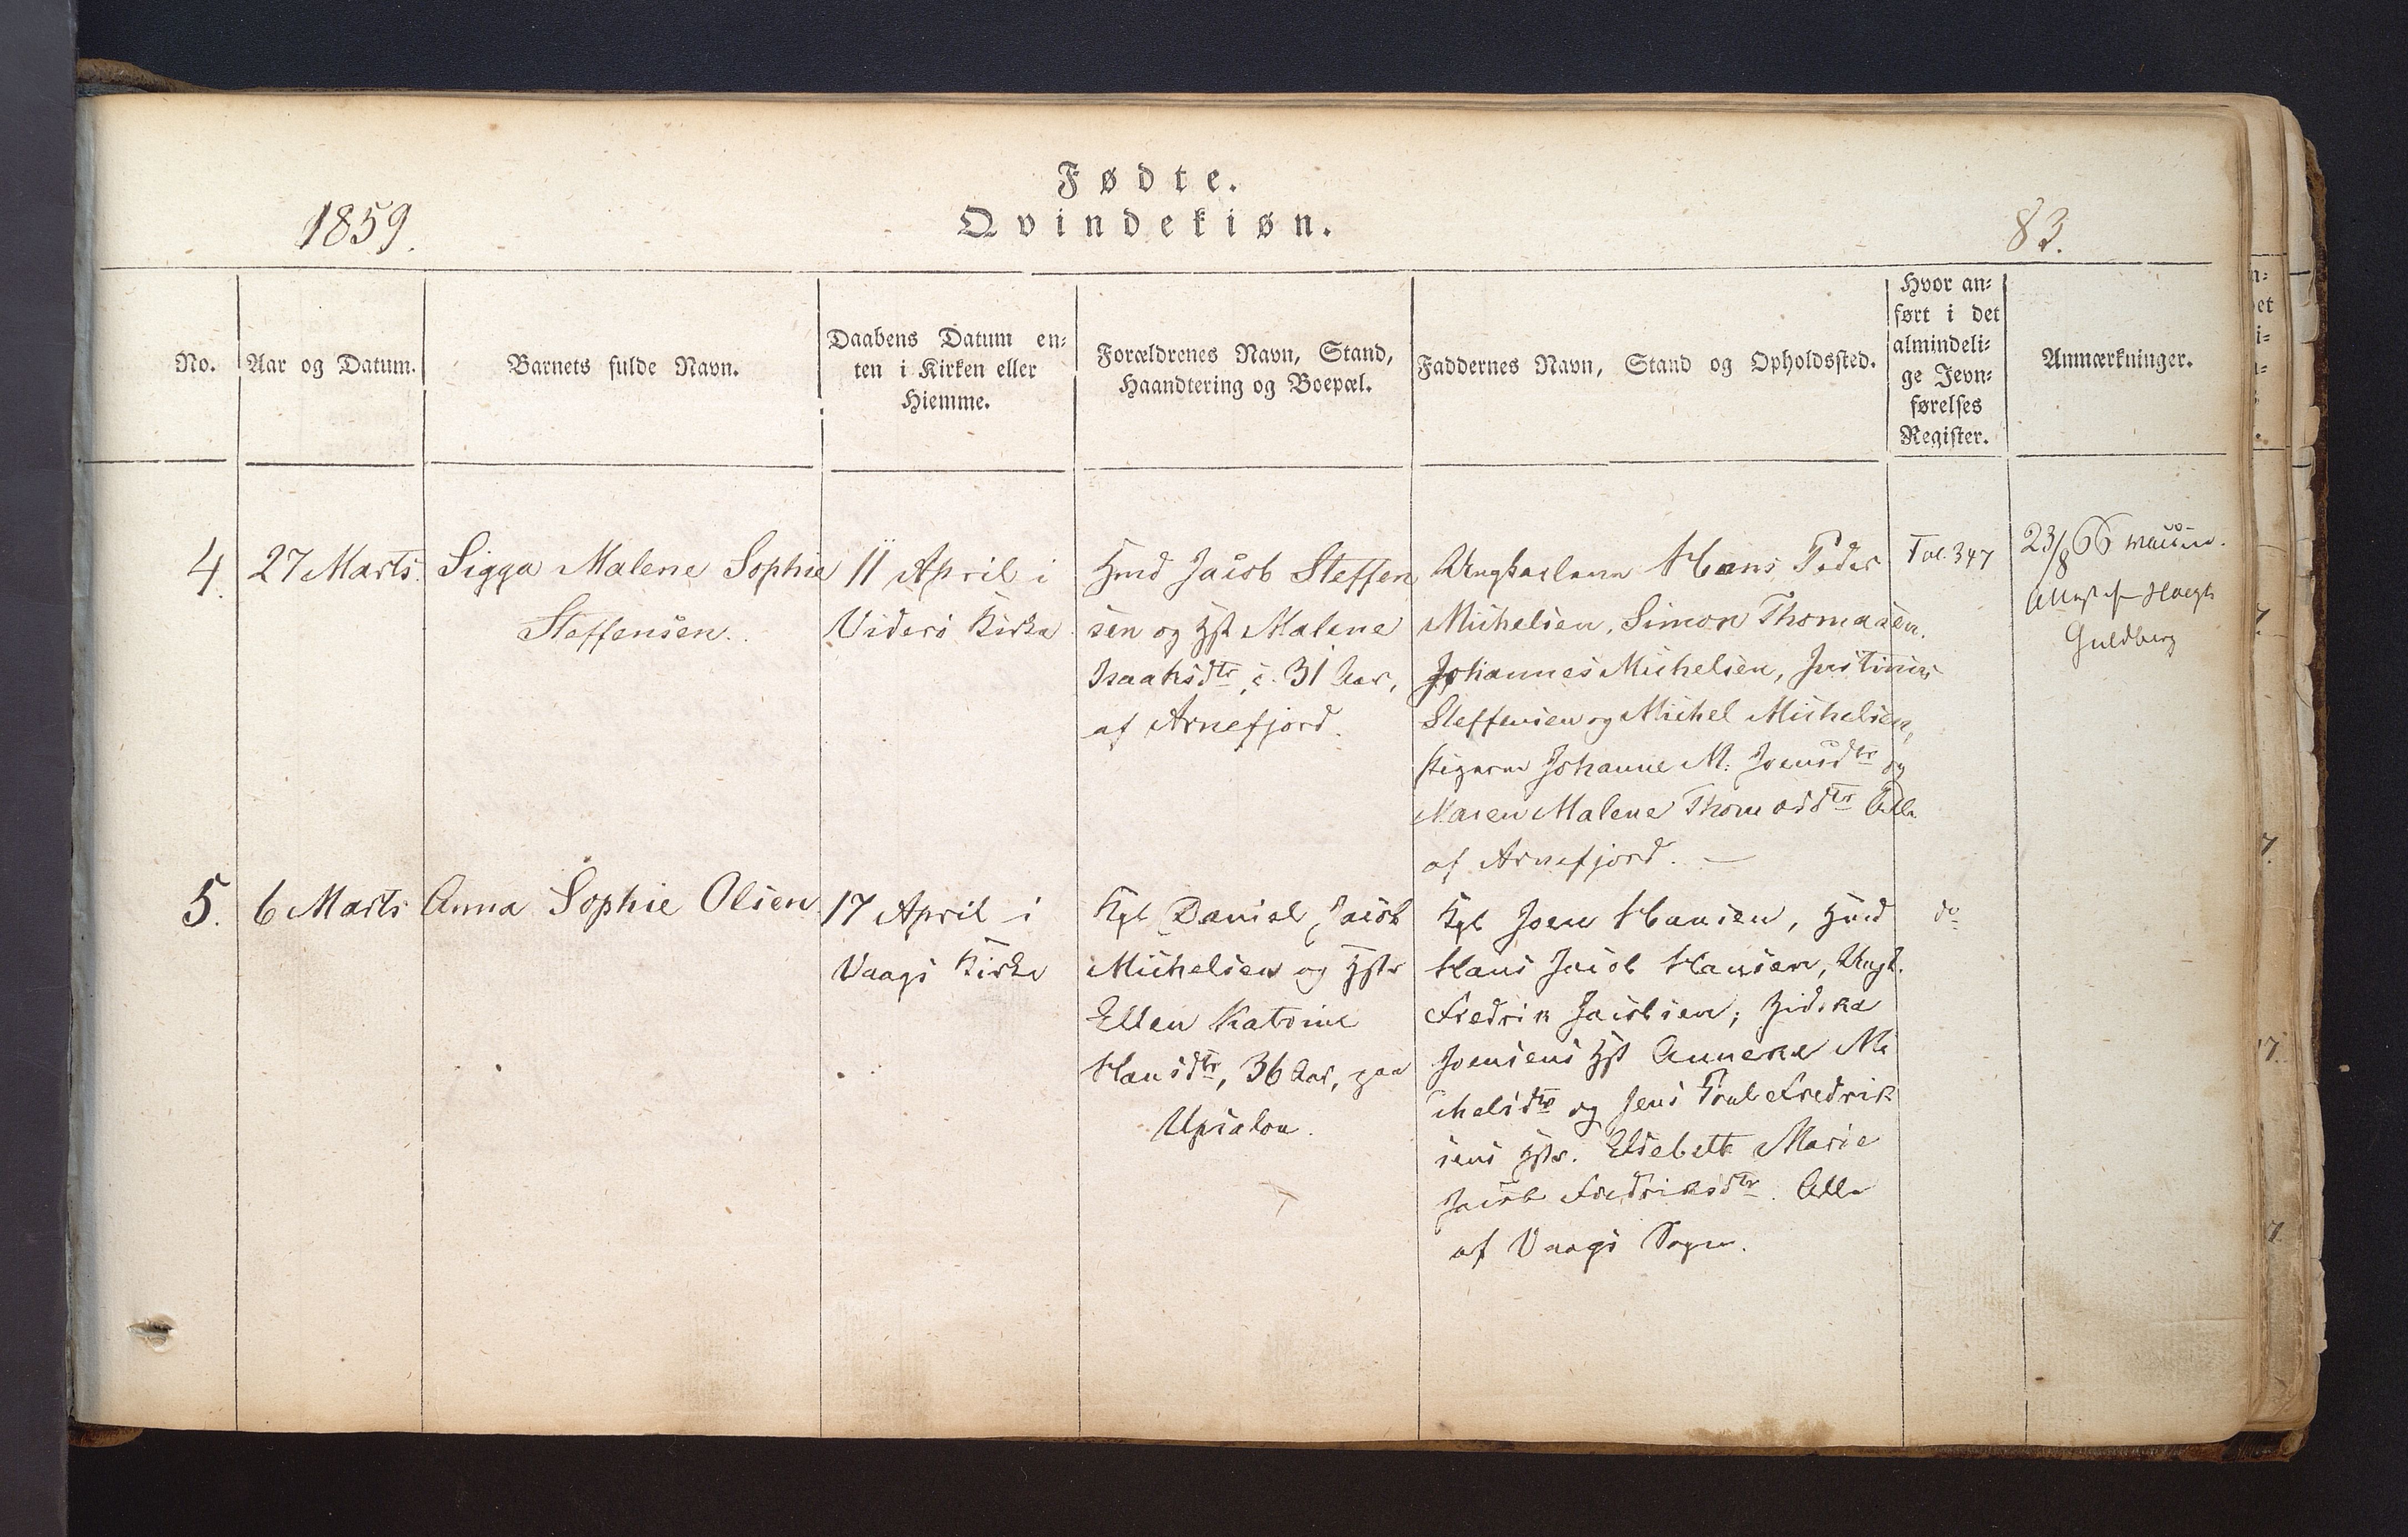 Fødte.
Qvindekiøn.
1859.
83.
No.
Aar og Datum.
Barnets fulde Navn.
Daabens Datum en-
ten i Kirken eller
Hiemme.
Forældrenes Navn, Stand,
Haandtering og Boepæl.
Faddernes Navn, Stand og Opholdssted.
Hvor an-
ført i det
almindeli-
ge Jevn-
førelses
Register.
Anmærkninger.
4.
27 Marts.
Sigga Malene Sophie
Steffensen.
11 April i
Viderö Kirke
Hmd Jacob Steffen
sen og Hst Malene
Isaksdtr, 31 Aar,
af Arnefjord.
Ungkarlene Hans Peder
Michelsen, Simon Thomasen.
Johannes Michelsen, Justinus
Steffensen og Michel Michelsen,
Pigerne Johanne M. Joensdtr og
Maren Malene Thomasdtr Alle
af Arnefjord.
Fol. 347
23/8 66 vaccin.
Attest fra Hoegh
Guldberg
5.
6 Marts
Anna Sophie Olsen
17 April i
Vaags Kirke
Kgb Daniel Jacob
Michelsen og Hstr
Ellen Katrine
Hansdtr, 36 Aar, paa
Upsalon.
Kgb Joen Hansen, Hmd
Hans Jacob Hansen, Ungk.
Fredrik Jacobsen;
Joensens Hst Anneke Mi
chelsdtr og Jens Poul Fredrik
sens Hstr. Elsebeth Marie
Jacob Fredriksdtr. Alle
af Vaags Sogn.
do